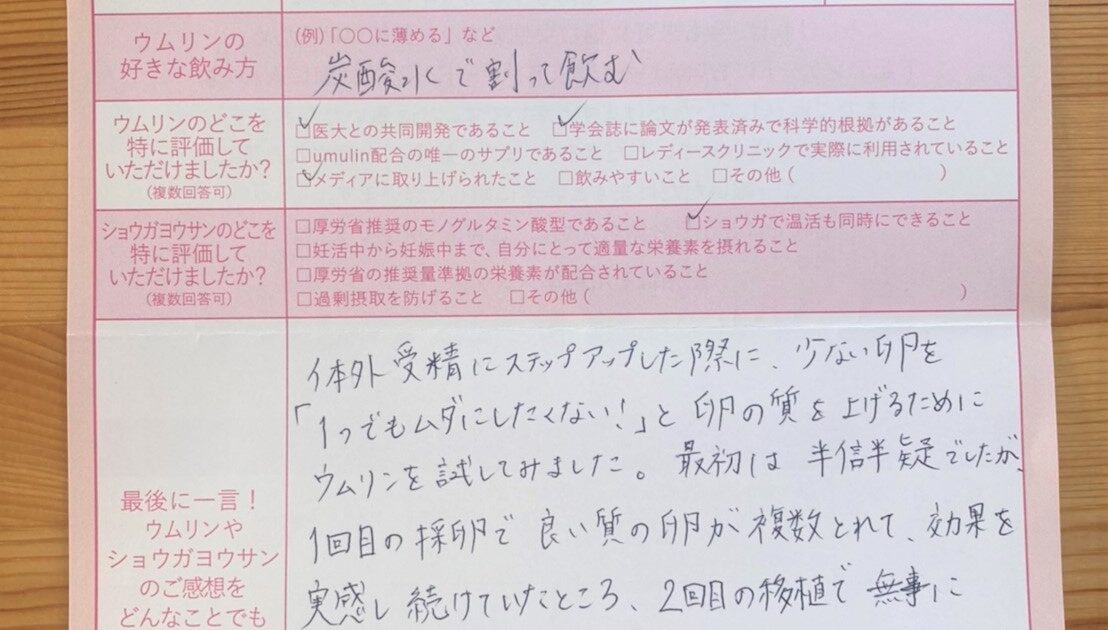 ウムリンの
好きな飲み方
(例)「〇〇に薄める」など
炭酸水で割って飲む
ウムリンのどこを
特に評価して
いただけましたか?
(複数回答可)
☑医大との共同開発であること ☑学会誌に論文が発表済みで科学的根拠があること
□umulin配合の唯一のサプリであること □レディースクリニックで実際に利用されていること
☑メディアに取り上げられたこと □飲みやすいこと □その他( )
ショウガヨウサンのどこを
特に評価して
いただけましたか?
(複数回答可)
□厚労省推奨のモノグルタミン酸型であること ☑ショウガで温活も同時にできること
□妊活中から妊娠中まで、自分にとって適量な栄養素を摂れること
□厚労省の推奨量準拠の栄養素が配合されていること
□過剰摂取を防げること □その他( )
最後に一言!
ウムリンや
ショウガヨウサン
のご感想を
どんなことでも
体外受精にステップアップした際に、少ない卵を
「1つでもムダにしたくない!」と卵の質を上げるために
ウムリンを試してみました。最初は半信半疑でしたが、
1回目の採卵で良い質の卵が複数とれて、効果を
実感し続けていたところ、2回目の移植で無事に